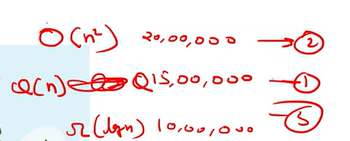 O(n²) 20,00,000 → 2
Q(n) 15,00,000 1
Ω(logn) 10,00,000 5